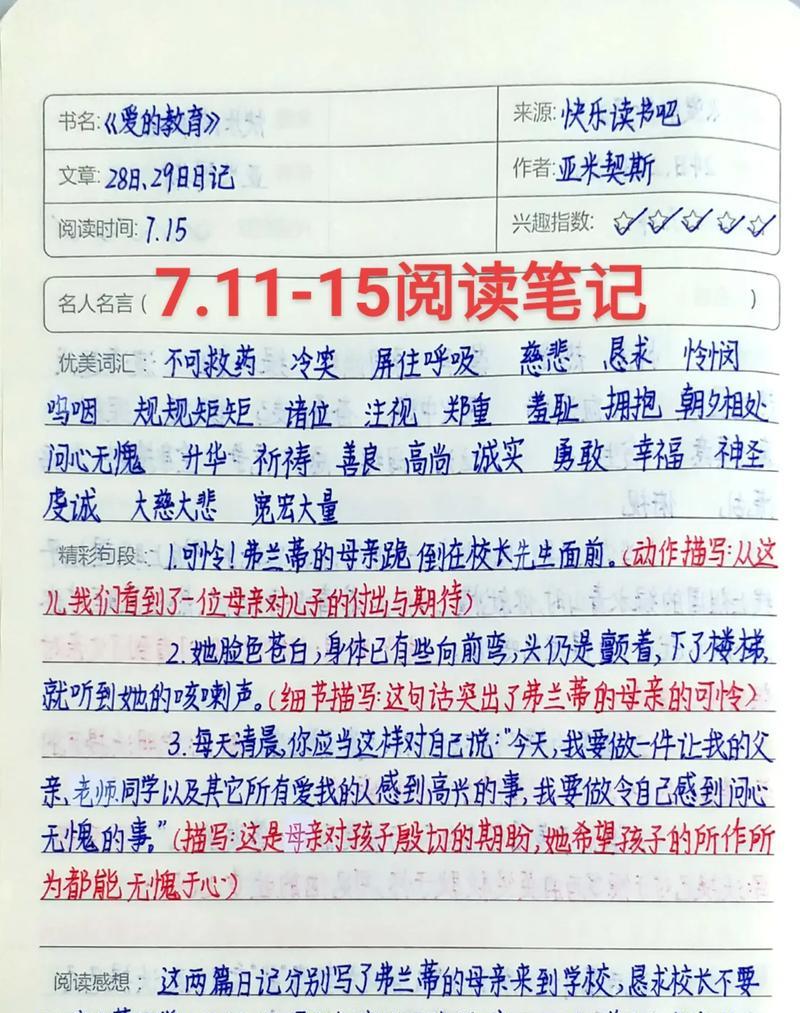 书名:《爱的教育》 来源:快乐读书吧
文章:28日、29日日记 作者:亚米契斯
阅读时间:7.15 兴趣指数:
名人名言( )
7.11-15阅读笔记
优美词汇: 不可救药 冷笑 屏住呼吸 慈悲 恳求 怜悯
呜咽 规规矩矩 诸位 注视 郑重 羞耻 拥抱 朝夕相处
问心无愧 升华 祈祷 善良 高尚 诚实 勇敢 幸福 神圣
虔诚 大慈大悲 宽宏大量
精彩句段: 1.可怜!弗兰蒂的母亲跪倒在校长先生面前。(动作描写:从这
儿我们看到了一位母亲对儿子的付出与期待)
2.她脸色苍白,身体已有些向前弯,头仍是颤着,下了楼梯,
就听到她的咳喇声。(细节描写:这句话突出了弗兰蒂的母亲的可怜)
3.每天清晨,你应当这样对自己说:“今天,我要做一件让我的父
亲、老师、同学以及其它所有爱我的人感到高兴的事,我要做令自己感到问心
无愧的事。”(描写:这是母亲对孩子殷切的期盼,她希望孩子的所作所
为都能无愧于心)
阅读感想: 这两篇日记分别写了弗兰蒂的母亲来到学校,恳求校长不要